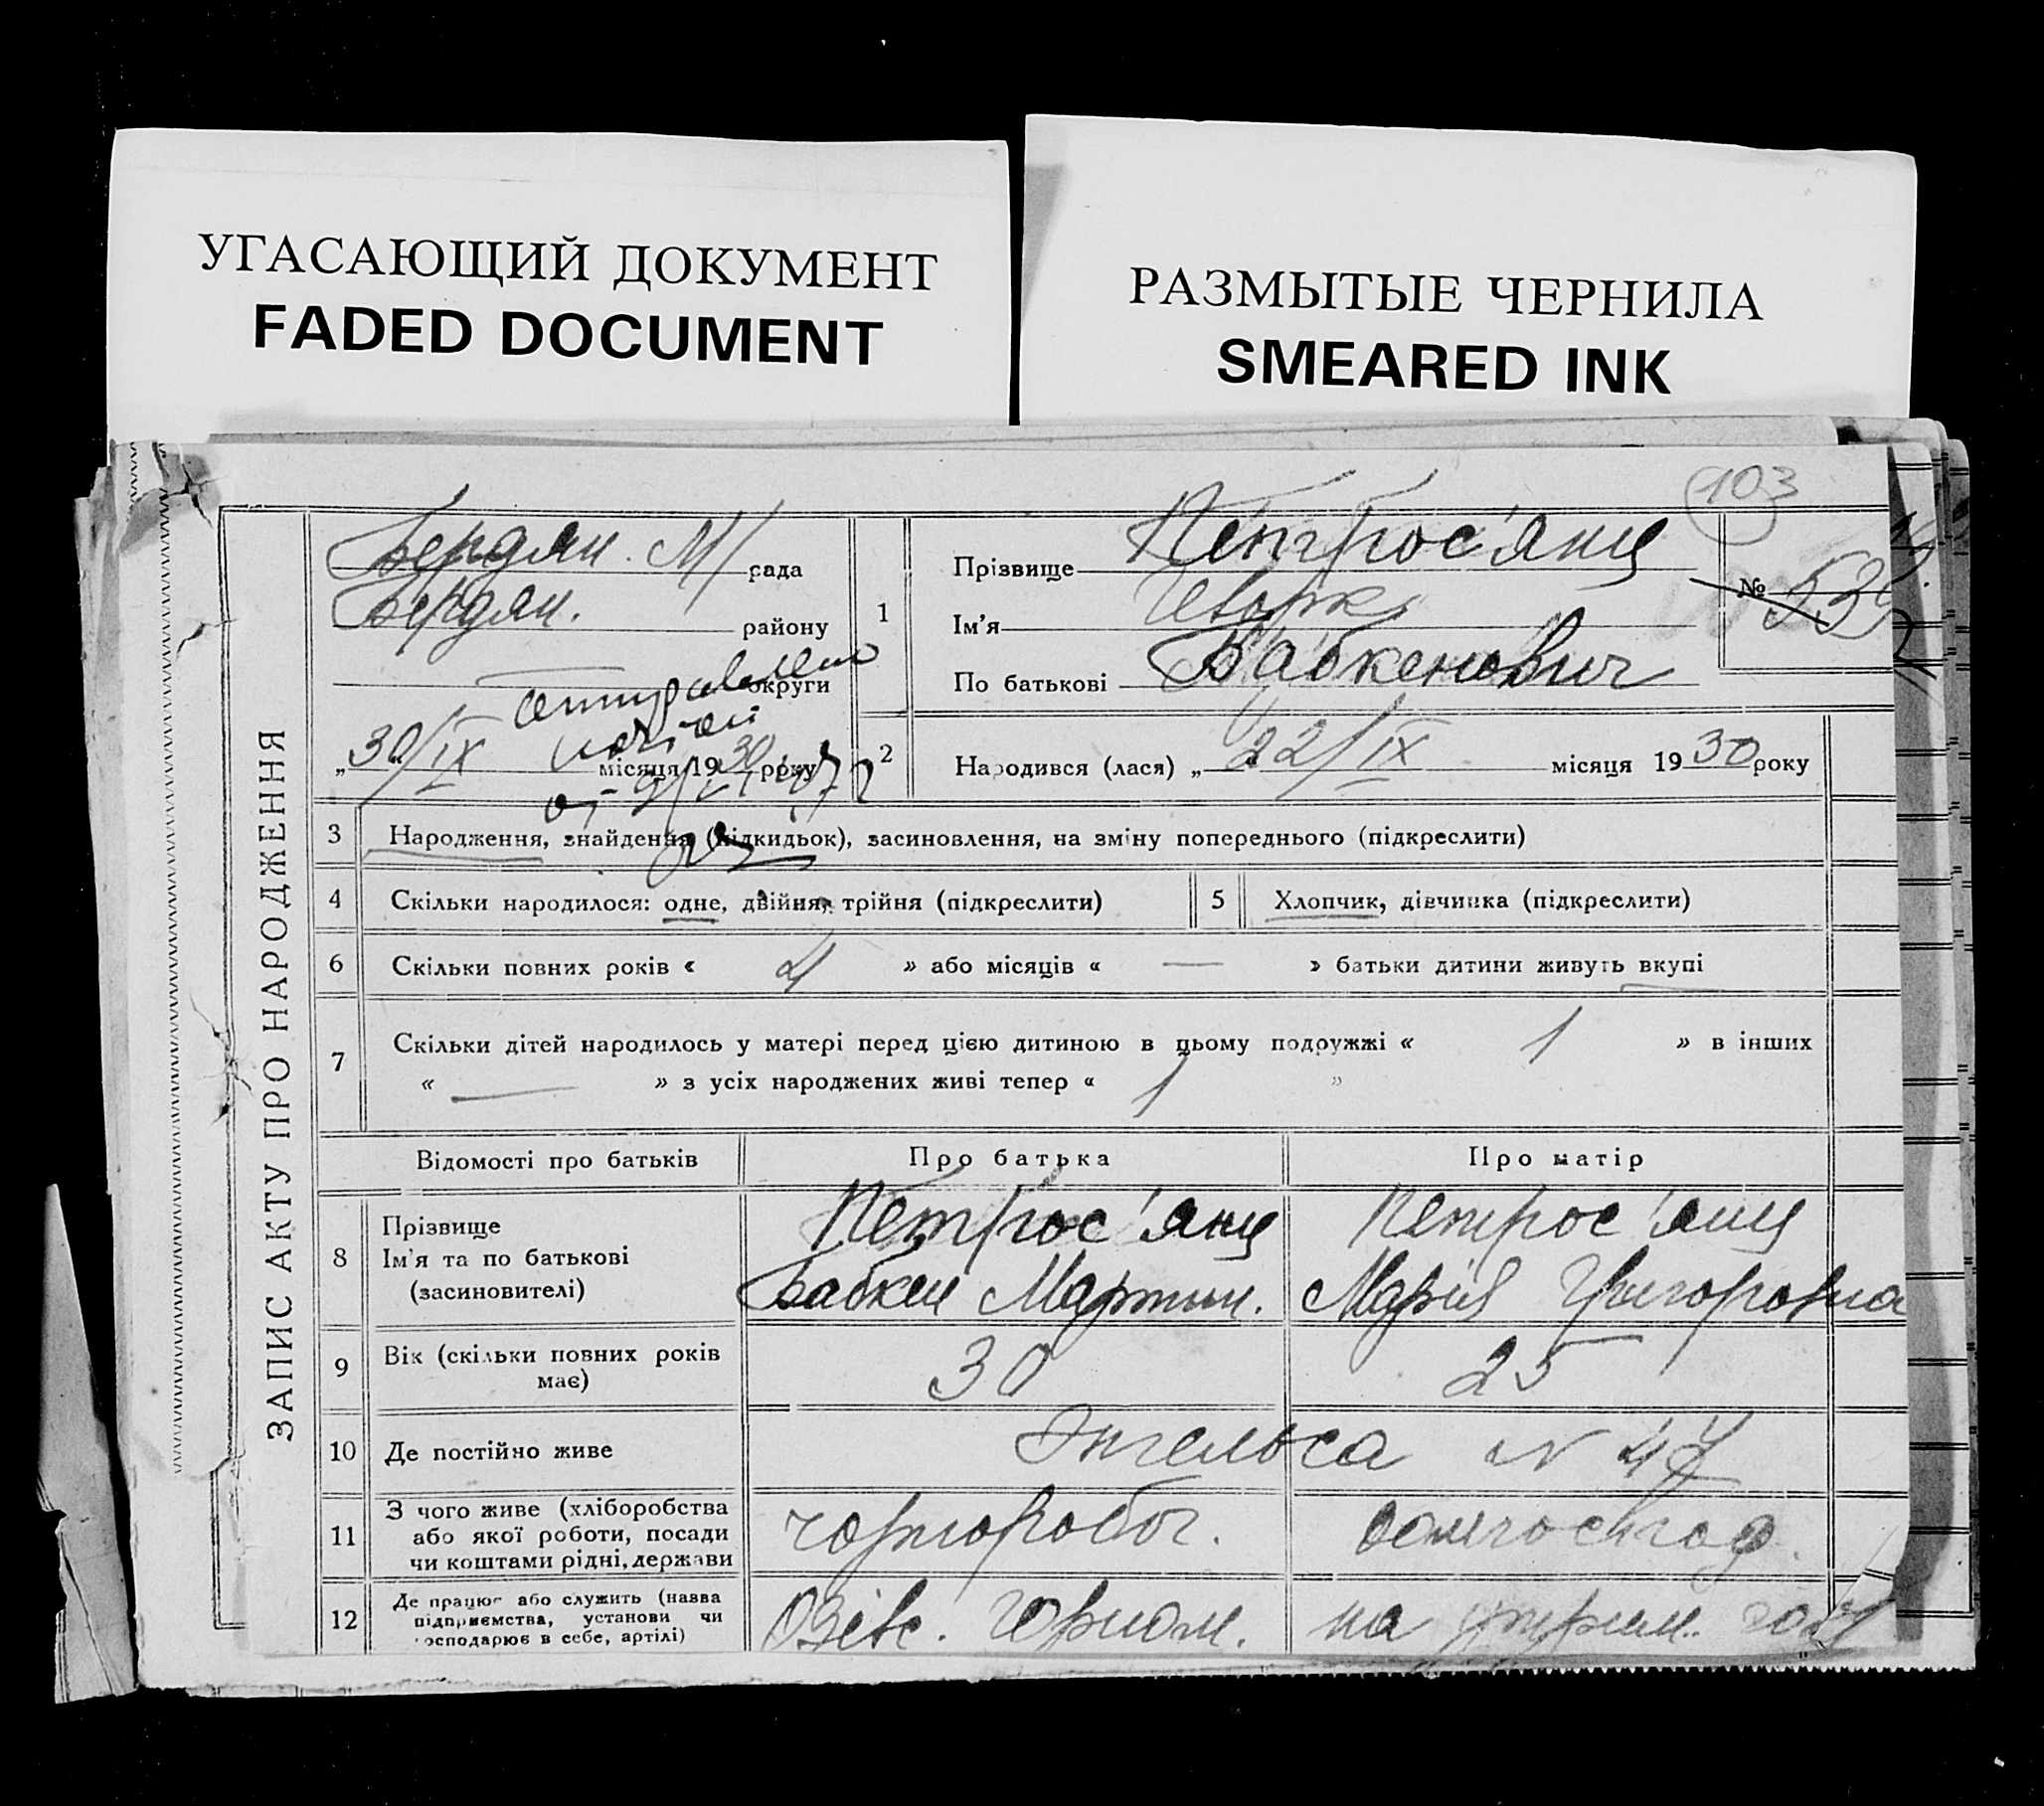 УГАСАЮЩИЙ ДОКУМЕНТ
FADED DOCUMENT
РАЗМЫТЫЕ ЧЕРНИЛА
SMEARED INK
103
ЗАПИС АКТУ ПРО НАРОДЖЕННЯ
Бердян. М/ рада
Бердян. району
округи
„30/IX місяця 1930 року
1 Прізвище Петрос'янц
Ім'я
По батькові Бабкенович
№ 
2 Народився (лася) „22/IX місяця 1930 року
3 Народження, знайдення (підкидьок), засиновлення, на зміну попереднього (підкреслити)
4 Скільки народилося: одне, двійня, трійня (підкреслити)
5 Хлопчик, дівчинка (підкреслити)
6 Скільки повних років « 4 » або місяців « — » батьки дитини живуть вкупі
7 Скільки дітей народилось у матері перед цією дитиною в цьому подружжі « 1 » в інших
« — » з усіх народжених живі тепер « 1 »
Відомості про батьків Про батька Про матір
8 Прізвище Петрос'янц Петрос'янц
Ім'я та по батькові Бабкен Мартин. Марія Григоровна
(засиновителі)
9 Вік (скільки повних років 30 25
має)
10 Де постійно живе Энгельса N 47
11 З чого живе (хліборобства
або якої роботи, посади чорноробоч. домгоспод.
чи коштами рідні, держави
12 Де працює або служить (назва
підприємства, установи чи на утрим.
господарює в себе, артілі)